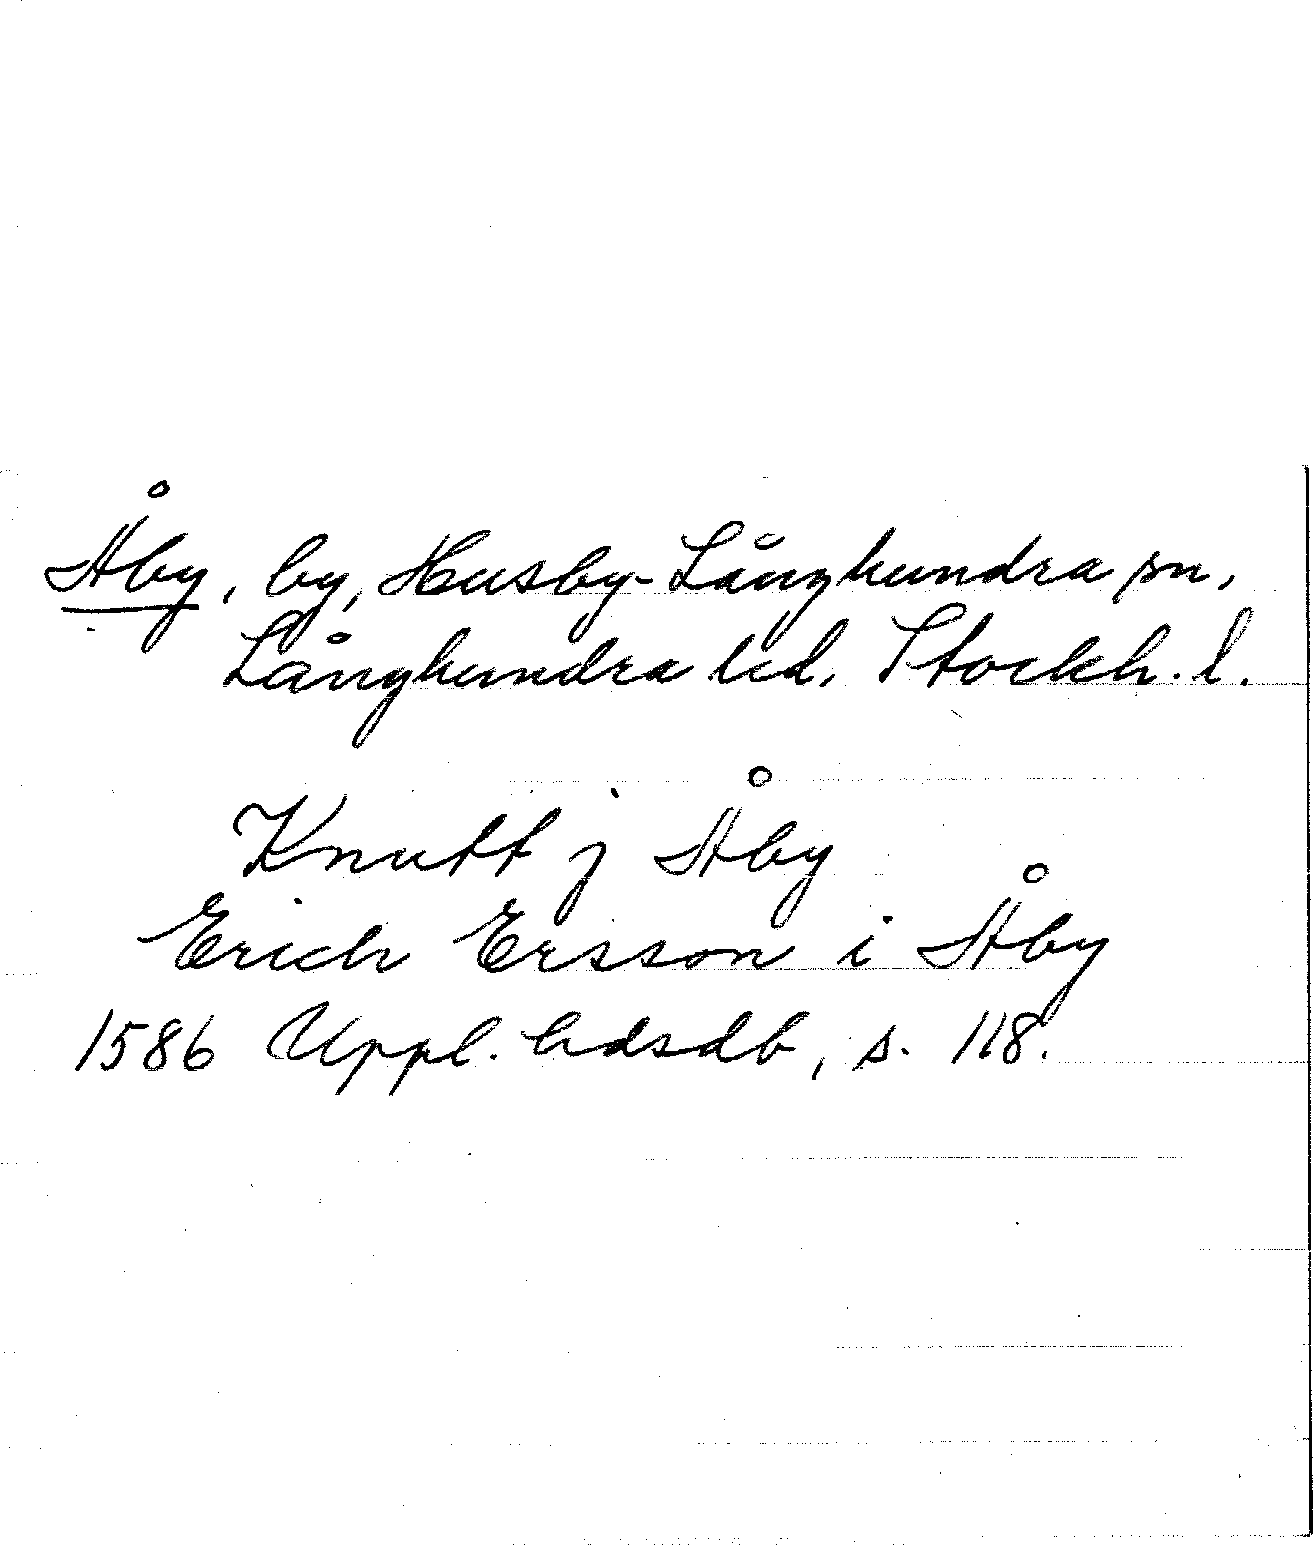 Åby, by, Husby-Långhundra sn,
Långhundra hd, Stockh. l.
Knutt j Åby
Erich Ersson i Åby
1586 Uppl. hdsdb, s. 118.